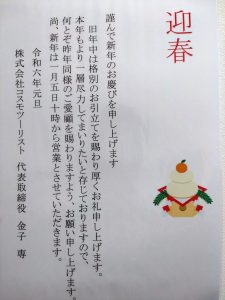 迎春
謹んで新年のお慶びを申し上げます
旧年中は格別のお引立てを賜わり厚くお礼申し上げます。
本年もより一層尽力してまいりたいと存じておりますので、
何とぞ昨年同様のご愛顧を賜わりますよう、お願い申し上げます。
尚、新年は一月五日十時から営業とさせていただきます。
令和六年元旦
株式会社コスモツーリスト 代表取締役 金子 専